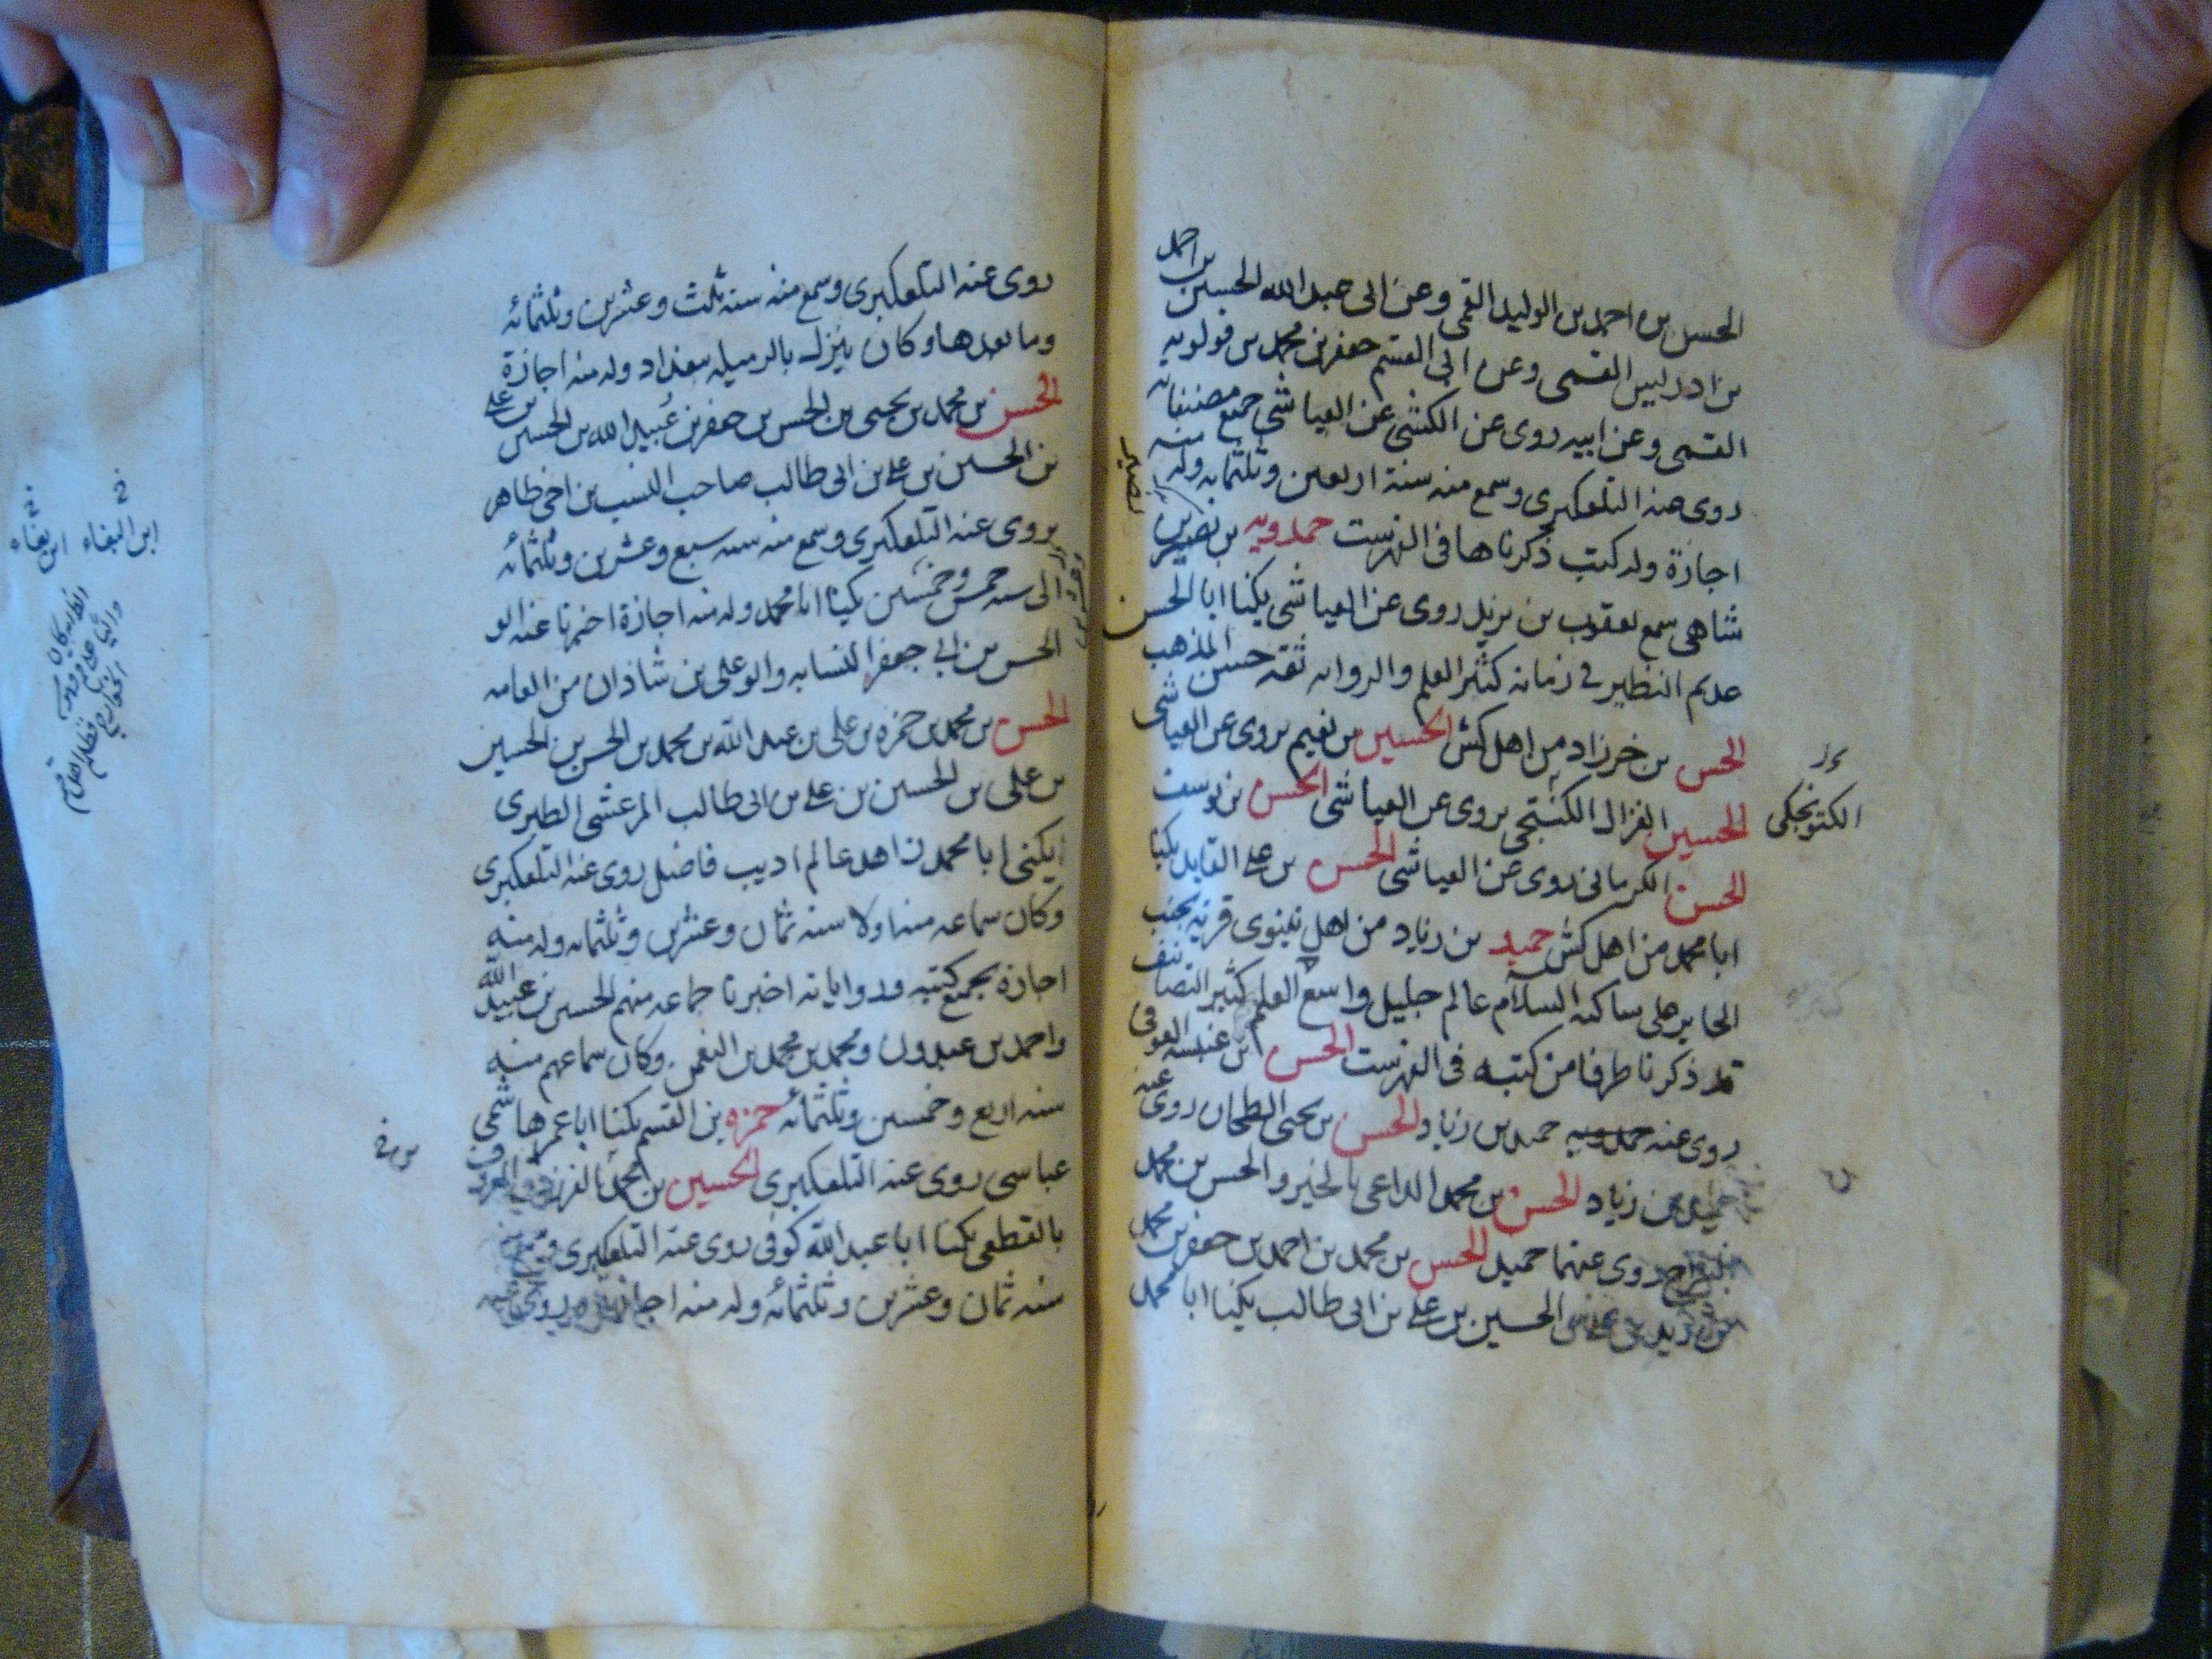 الحسن بن احمد بن الوليد القمي وعن ابي عبد الله الحسين بن احمد
بن ادريس القمي وعن ابي القسم جعفر بن محمد بن قولويه
القمي وعن ابيه روى عن الكشي عن العياشي جميع مصنفاته
روى عنه التلعكبرى وسمع منه سنة اربعين وثلثمايه وله منه
اجازة وله كتب ذكرناها فى الفهرست حمدويه بن نصير بن
شاهى سمع يعقوب بن يزيد روى عن العياشى يكنا ابا الحسن
عديم النظير في زمانه كثير العلم والروايه ثقه حسن المذهب
الحسن بن خرزاد من اهل كش الحسين بن نعيم يروى عن العياشى
الحسين الغزال الكنتجى يروى عن العياشى الحسن بن يوسف
الحسن الكرمانى روى عن العياشى الحسن بن على القايد يكنا
ابا محمد من اهل كش حميد بن زياد من اهل نينوى قريه بجنب
الحاير على ساكنه السلام عالم جليل واسع العلم كثير التصانيف
قد ذكرنا طرفا من كتبه فى الفهرست الحسن بن عنبسه العوفى
روى عنه حميد بن زياد الحسن بن يحيى الطحان روى عنه
حميد بن زياد الحسن بن محمد الداعى بالخير والحسن بن محمد
السراج روى عنهما حميد الحسن بن محمد بن احمد بن جعفر بن محمد
بن زيد بن على بن الحسين بن على بن ابى طالب يكنا ابا محمد
نصير
الكتونجكى
روى عنه التلعكبرى وسمع منه سنه ثلث وعشرين وثلثمائه
وما بعدها وكان ينزل بالرميله ببغداد وله منه اجازة
الحسن بن محمد بن يحيى بن الحسن بن جعفر بن عبيد الله بن الحسين بن على
بن الحسين بن على بن ابى طالب صاحب النسب بن اخى طاهر
يروى عنه التلعكبرى وسمع منه سنه سبع وعشرين وثلثمائه
الى سنه خمس وخمسين يكنا ابا محمد وله منه اجازة اخبرنا عنه ابو
الحسن بن ابي جعفر النسابه وابو على بن شاذان من العامه
الحسن بن محمد بن حمزه بن على بن عبد الله بن محمد بن الحسن بن الحسين
بن على بن الحسين بن على بن ابى طالب المرعشى الطبرى
يكنى ابا محمد زاهد عالم اديب فاضل روى عنه التلعكبرى
وكان سماعه منه اولا سنه ثمان وعشرين وثلثمايه وله منه
اجازة بجميع كتبه ورواياته اخبرنا جماعه منهم الحسين بن عبيد الله
واحمد بن عبدون ومحمد بن محمد بن النعمن وكان سماعهم منه
سنه اربع وخمسين وثلثمائه حمزه بن القسم يكنا ابا عمر هاشمى
عباسى روى عنه التلعكبرى الحسين بن محمد الفرزدق المعروف
بالقطعى يكنا ابا عبد الله كوفى روى عنه التلعكبرى
سنه ثمان وعشرين وثلثمائه وله منه اجازة
ابن البغاء
ابن بغاء